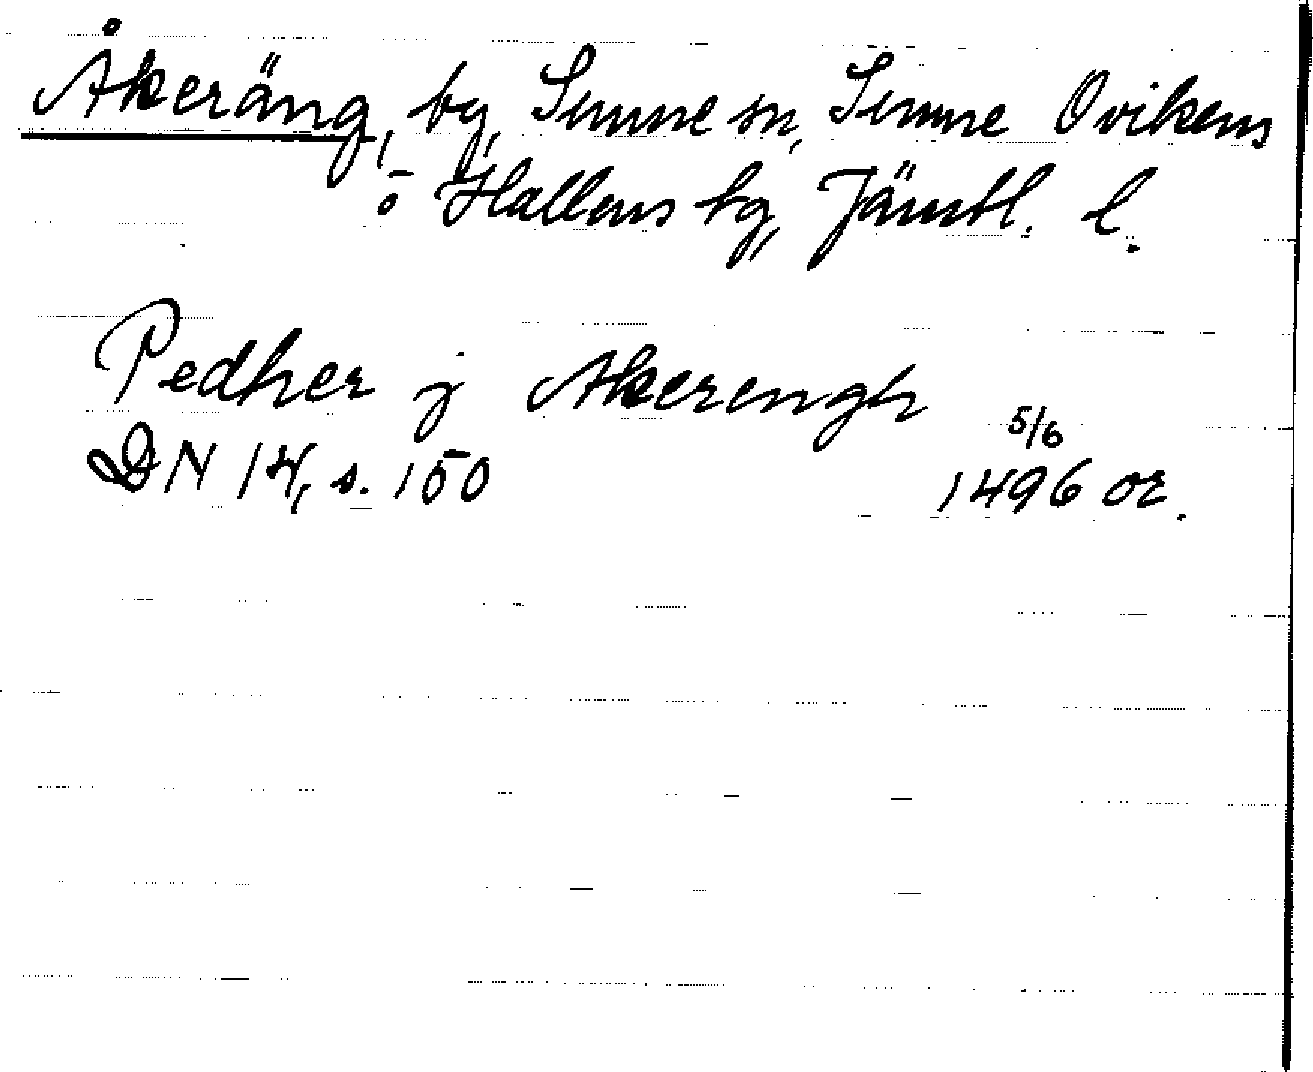 Åkeräng, by, Sunne sn, Sunne Ovikens
o Hallens tg, Jämtl. l.
Pedher j Akerengh
5/6
DN 14, s. 150 1496 or.